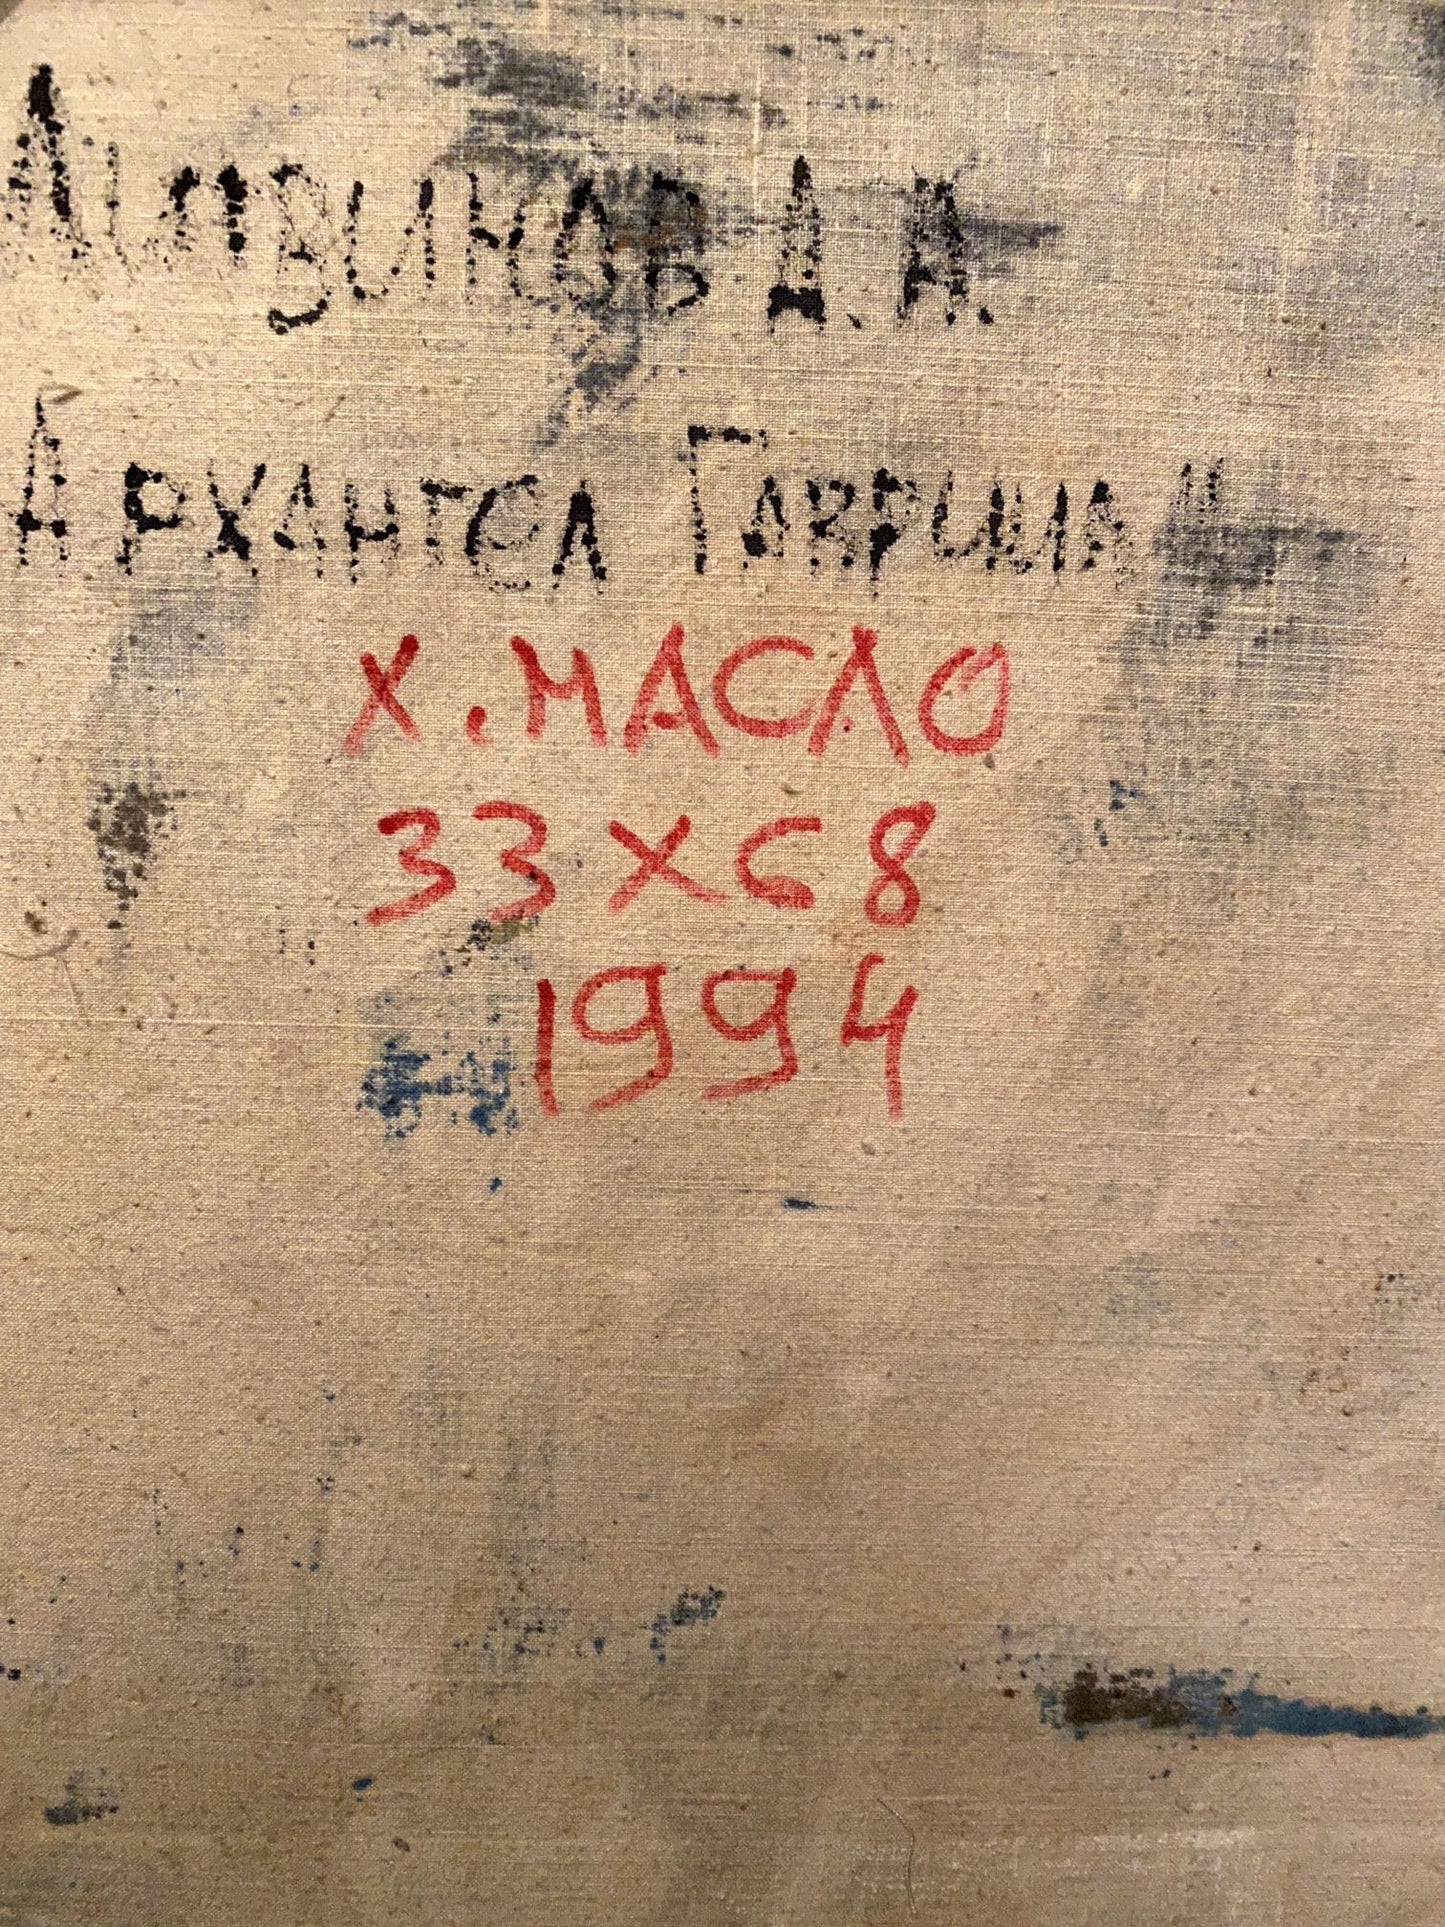 Литвинов Д. А.
Архангел Гавриил"
Х. МАСЛО
33 x 68
1994